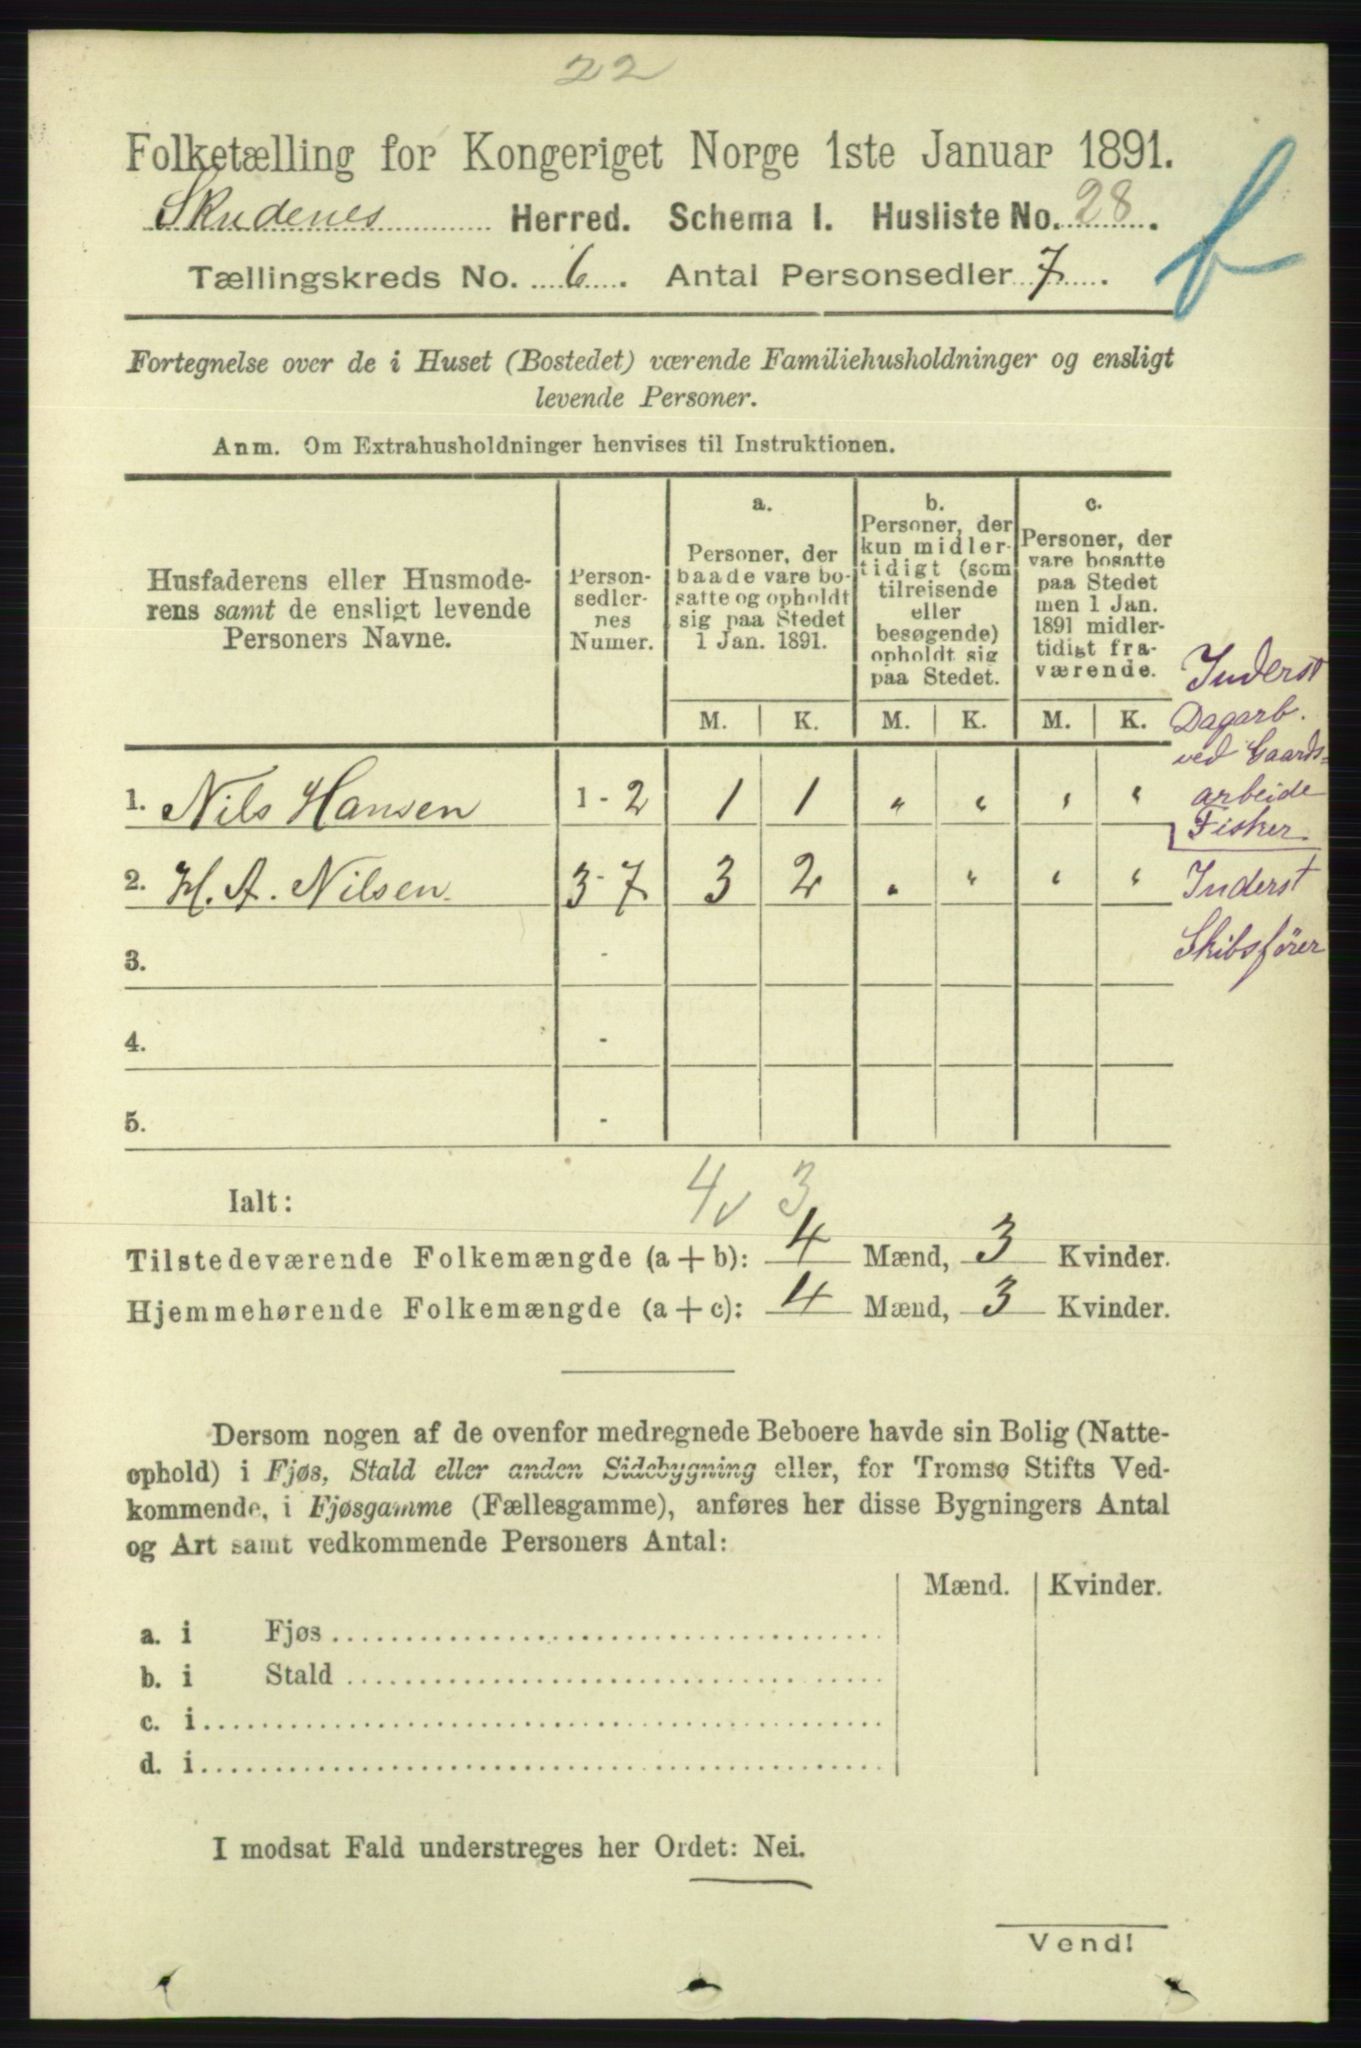 22
Folketælling for Kongeriget Norge 1ste Januar 1891.
Skudenes Herred. Schema I. Husliste No. 28.
Tællingskreds No. 6. Antal Personsedler 7.
Fortegnelse over de i Huset (Bostedet) værende Familiehusholdninger og ensligt
levende Personer.
Anm. Om Extrahusholdninger henvises til Instruktionen.
Husfaderens eller Husmode-
rens samt de ensligt levende
Personers Navne.
Person-
sedler-
nes
Numer.
a.
Personer, der
baade vare bo-
satte og opholdt
sig paa Stedet
1 Jan. 1891.
b.
Personer, der
kun midler-
tidigt (som
tilreisende
eller
besøgende)
opholdt sig
paa Stedet.
c.
Personer, der
vare bosatte
paa Stedet
men 1 Jan.
1891 midler-
tidigt fra-
værende.
M. K. M. K. M. K.
1. Nils Hansen 1 - 2 1 1 " " " "
2. H. A. Nilsen. 3 - 7 3 2 " " " "
3. -
4. -
5. -
Inderst
Dagarb.
ved Gaards-
arbeide
Fisker.
Inderst
Skibsfører
4 3
Ialt:
Tilstedeværende Folkemængde (a + b): 4 Mænd, 3 Kvinder.
Hjemmehørende Folkemængde (a + c): 4 Mænd, 3 Kvinder.
Dersom nogen af de ovenfor medregnede Beboere havde sin Bolig (Natte-
ophold) i Fjøs, Stald eller anden Sidebygning eller, for Tromsø Stifts Ved-
kommende, i Fjøsgamme (Fællesgamme), anføres her disse Bygningers Antal
og Art samt vedkommende Personers Antal:
Mænd. Kvinder.
a. i Fjøs
b. i Stald
c. i
d. i
I modsat Fald understreges her Ordet: Nei.
Vend!